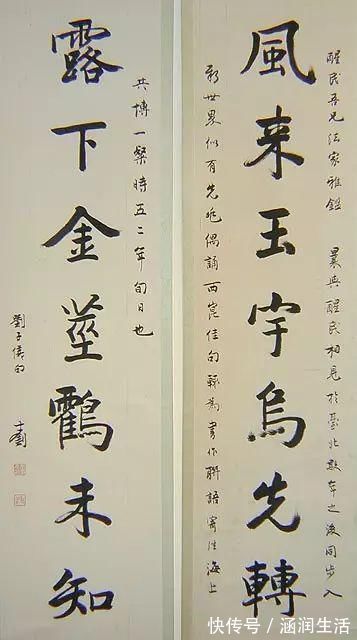 醒民吾兄法家雅鑑 曩與醒民相見於臺北數年之後同步入
風来玉宇烏先轉
新世界似有先兆偶誦西崑佳句輒為書作聯語寄往海上
共博一粲時五二年旬日也
露下金莖鸖未知
劉子
快传号/涵润生活